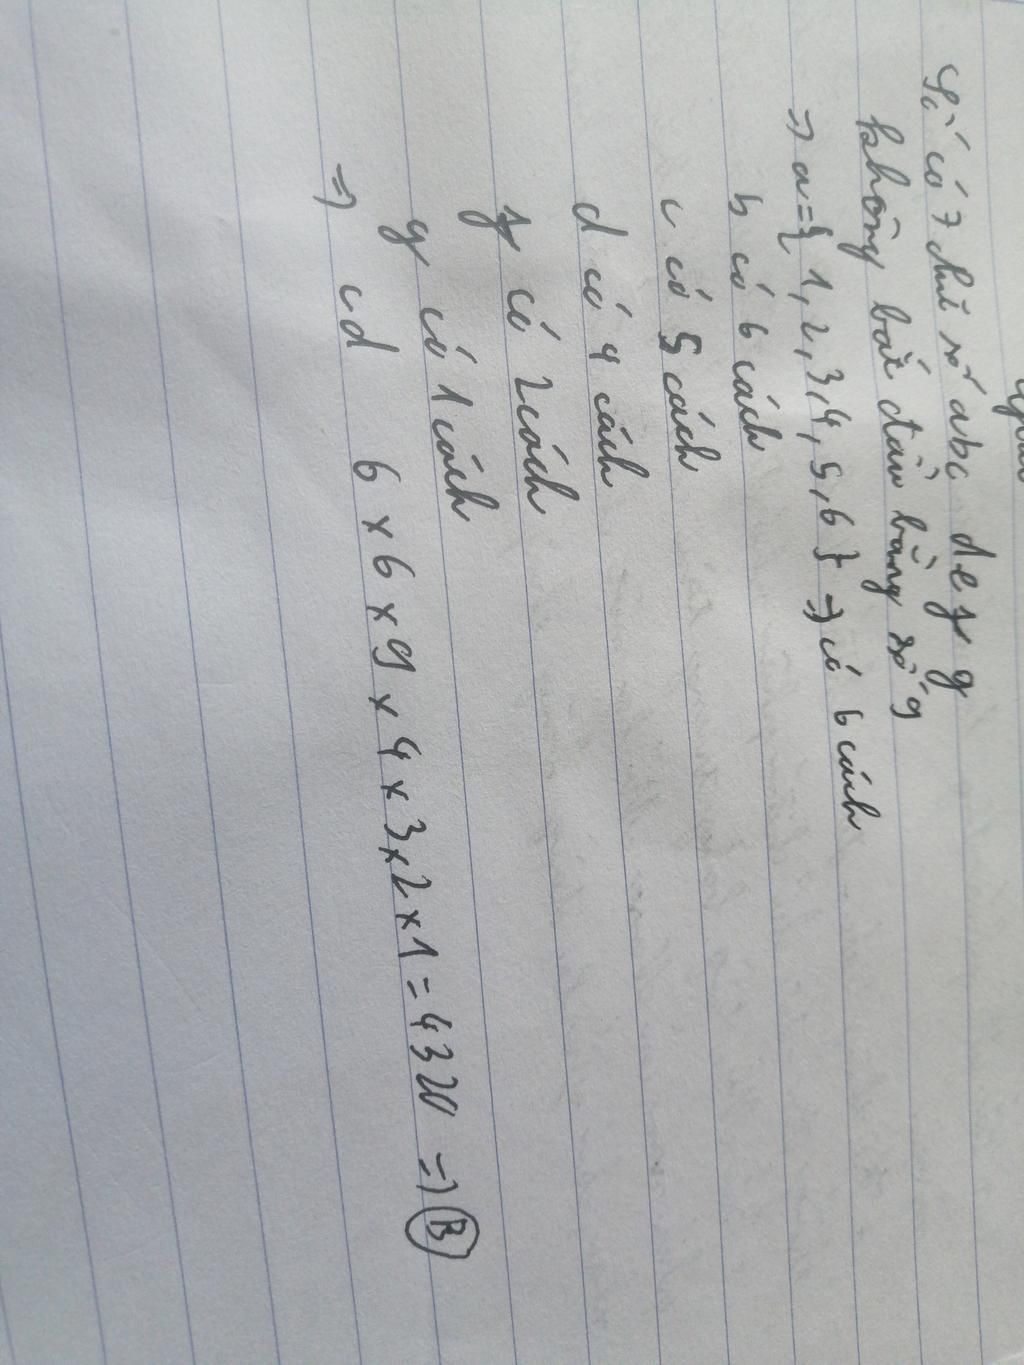 Số có 7 chữ số abc defg
không bắt đầu bằng số 9
=> a = { 1, 2, 3, 4, 5, 6 } => có 6 cách
b có 6 cách
c có 5 cách
d có 4 cách
f có 2 cách
g có 1 cách
=> cd 6 x 6 x 9 x 4 x 3 x 2 x 1 = 4320 => B